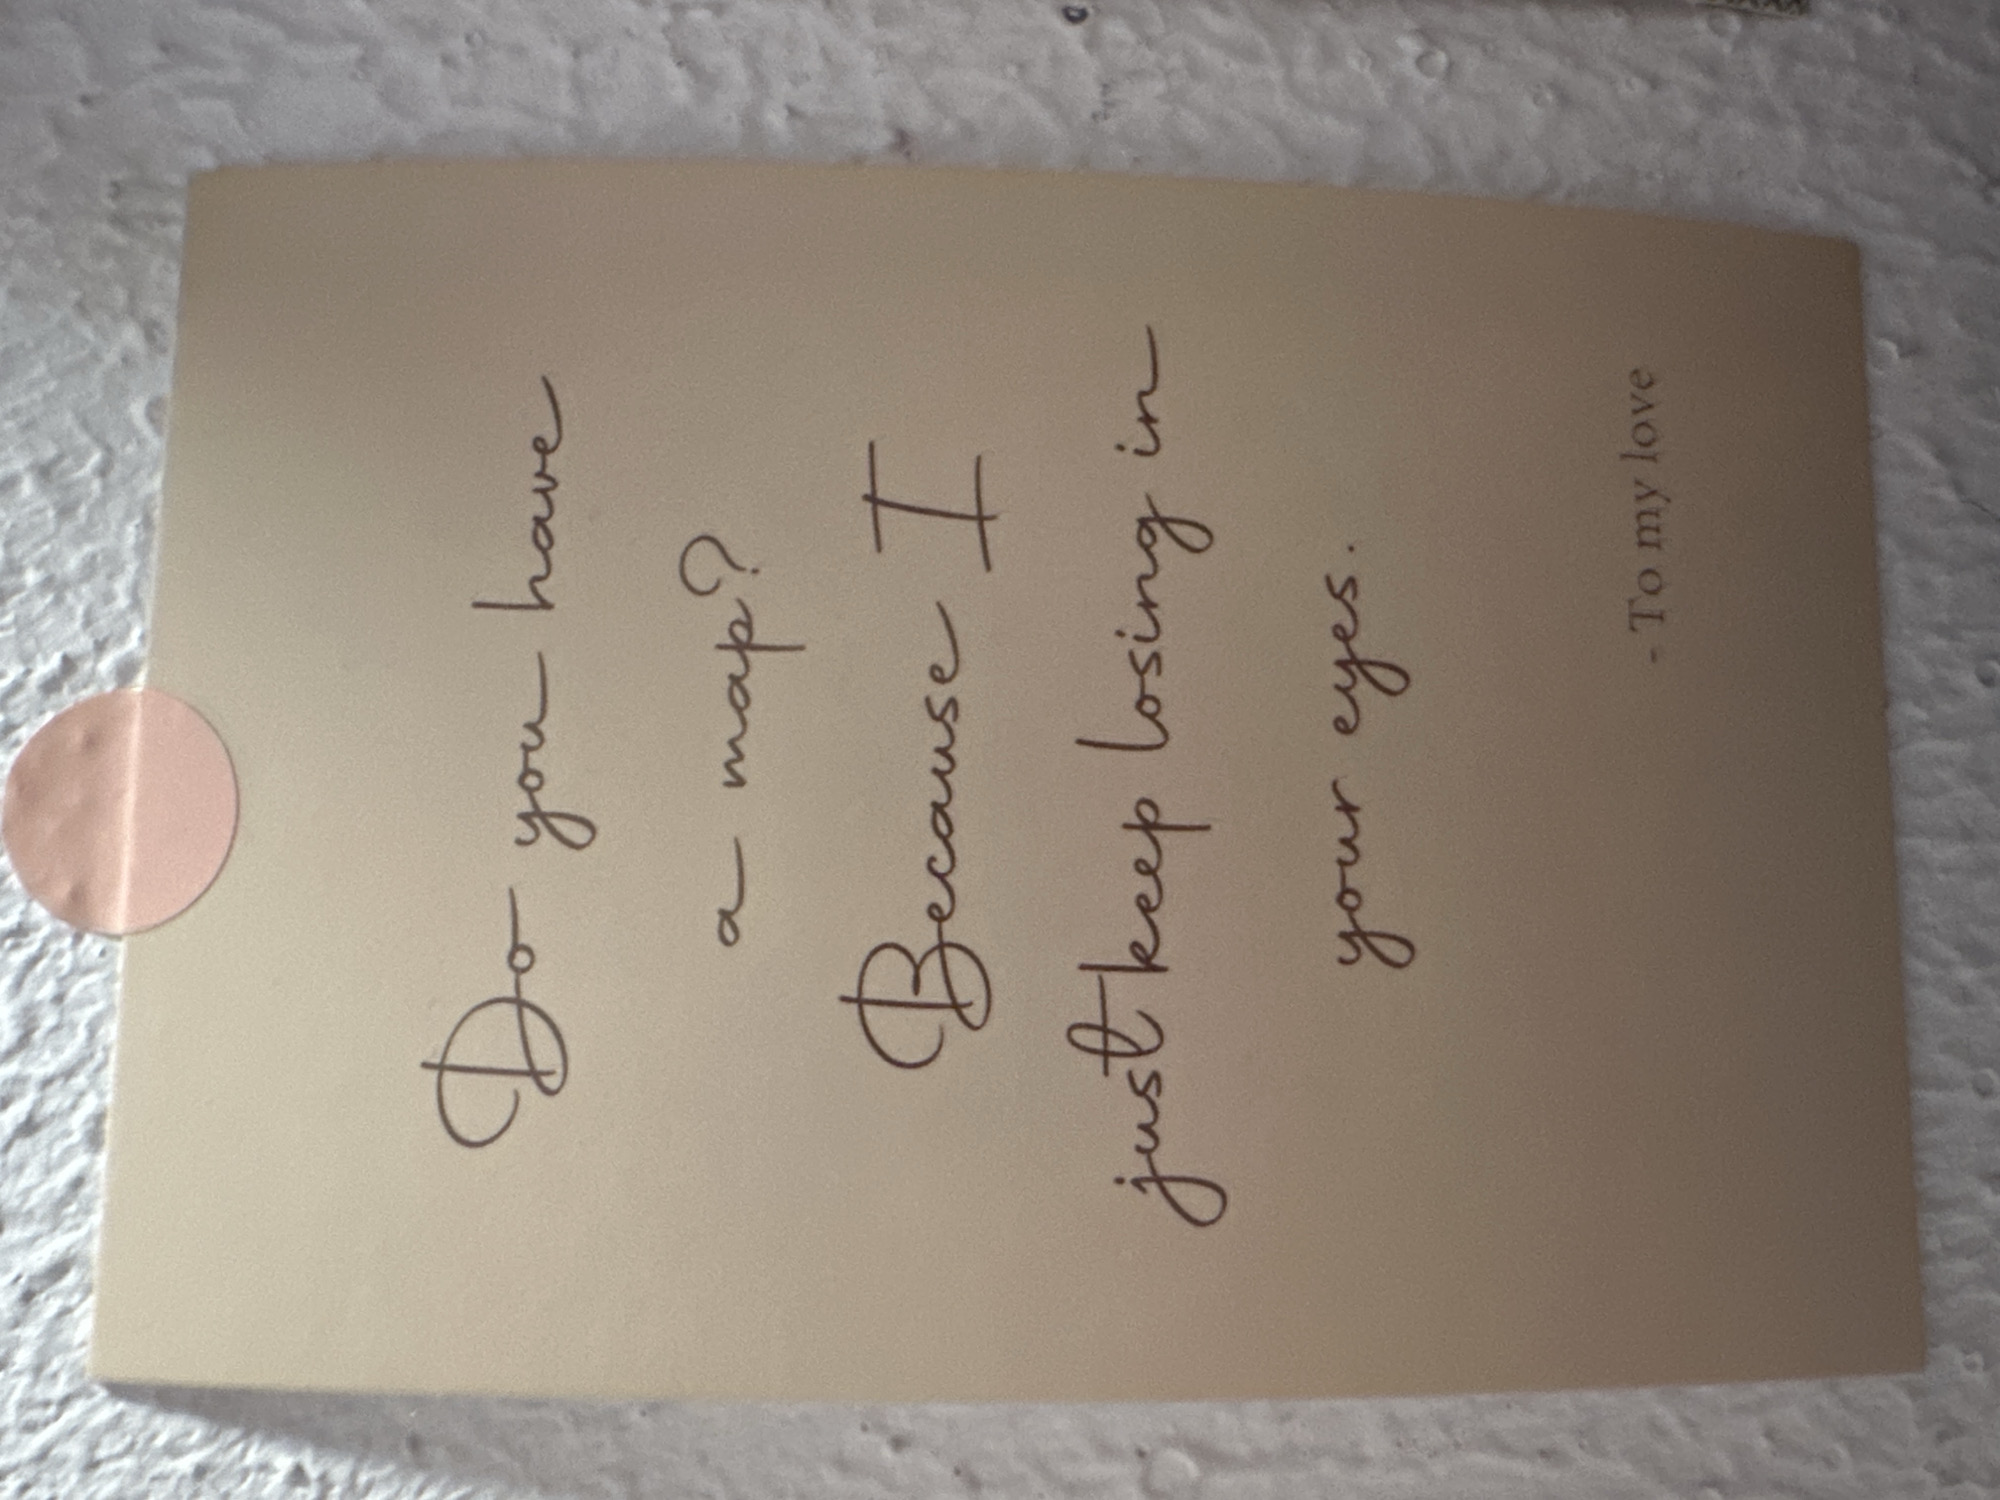 Do you have
a map?
Because I
just keep losing in
your eyes.
- To my love